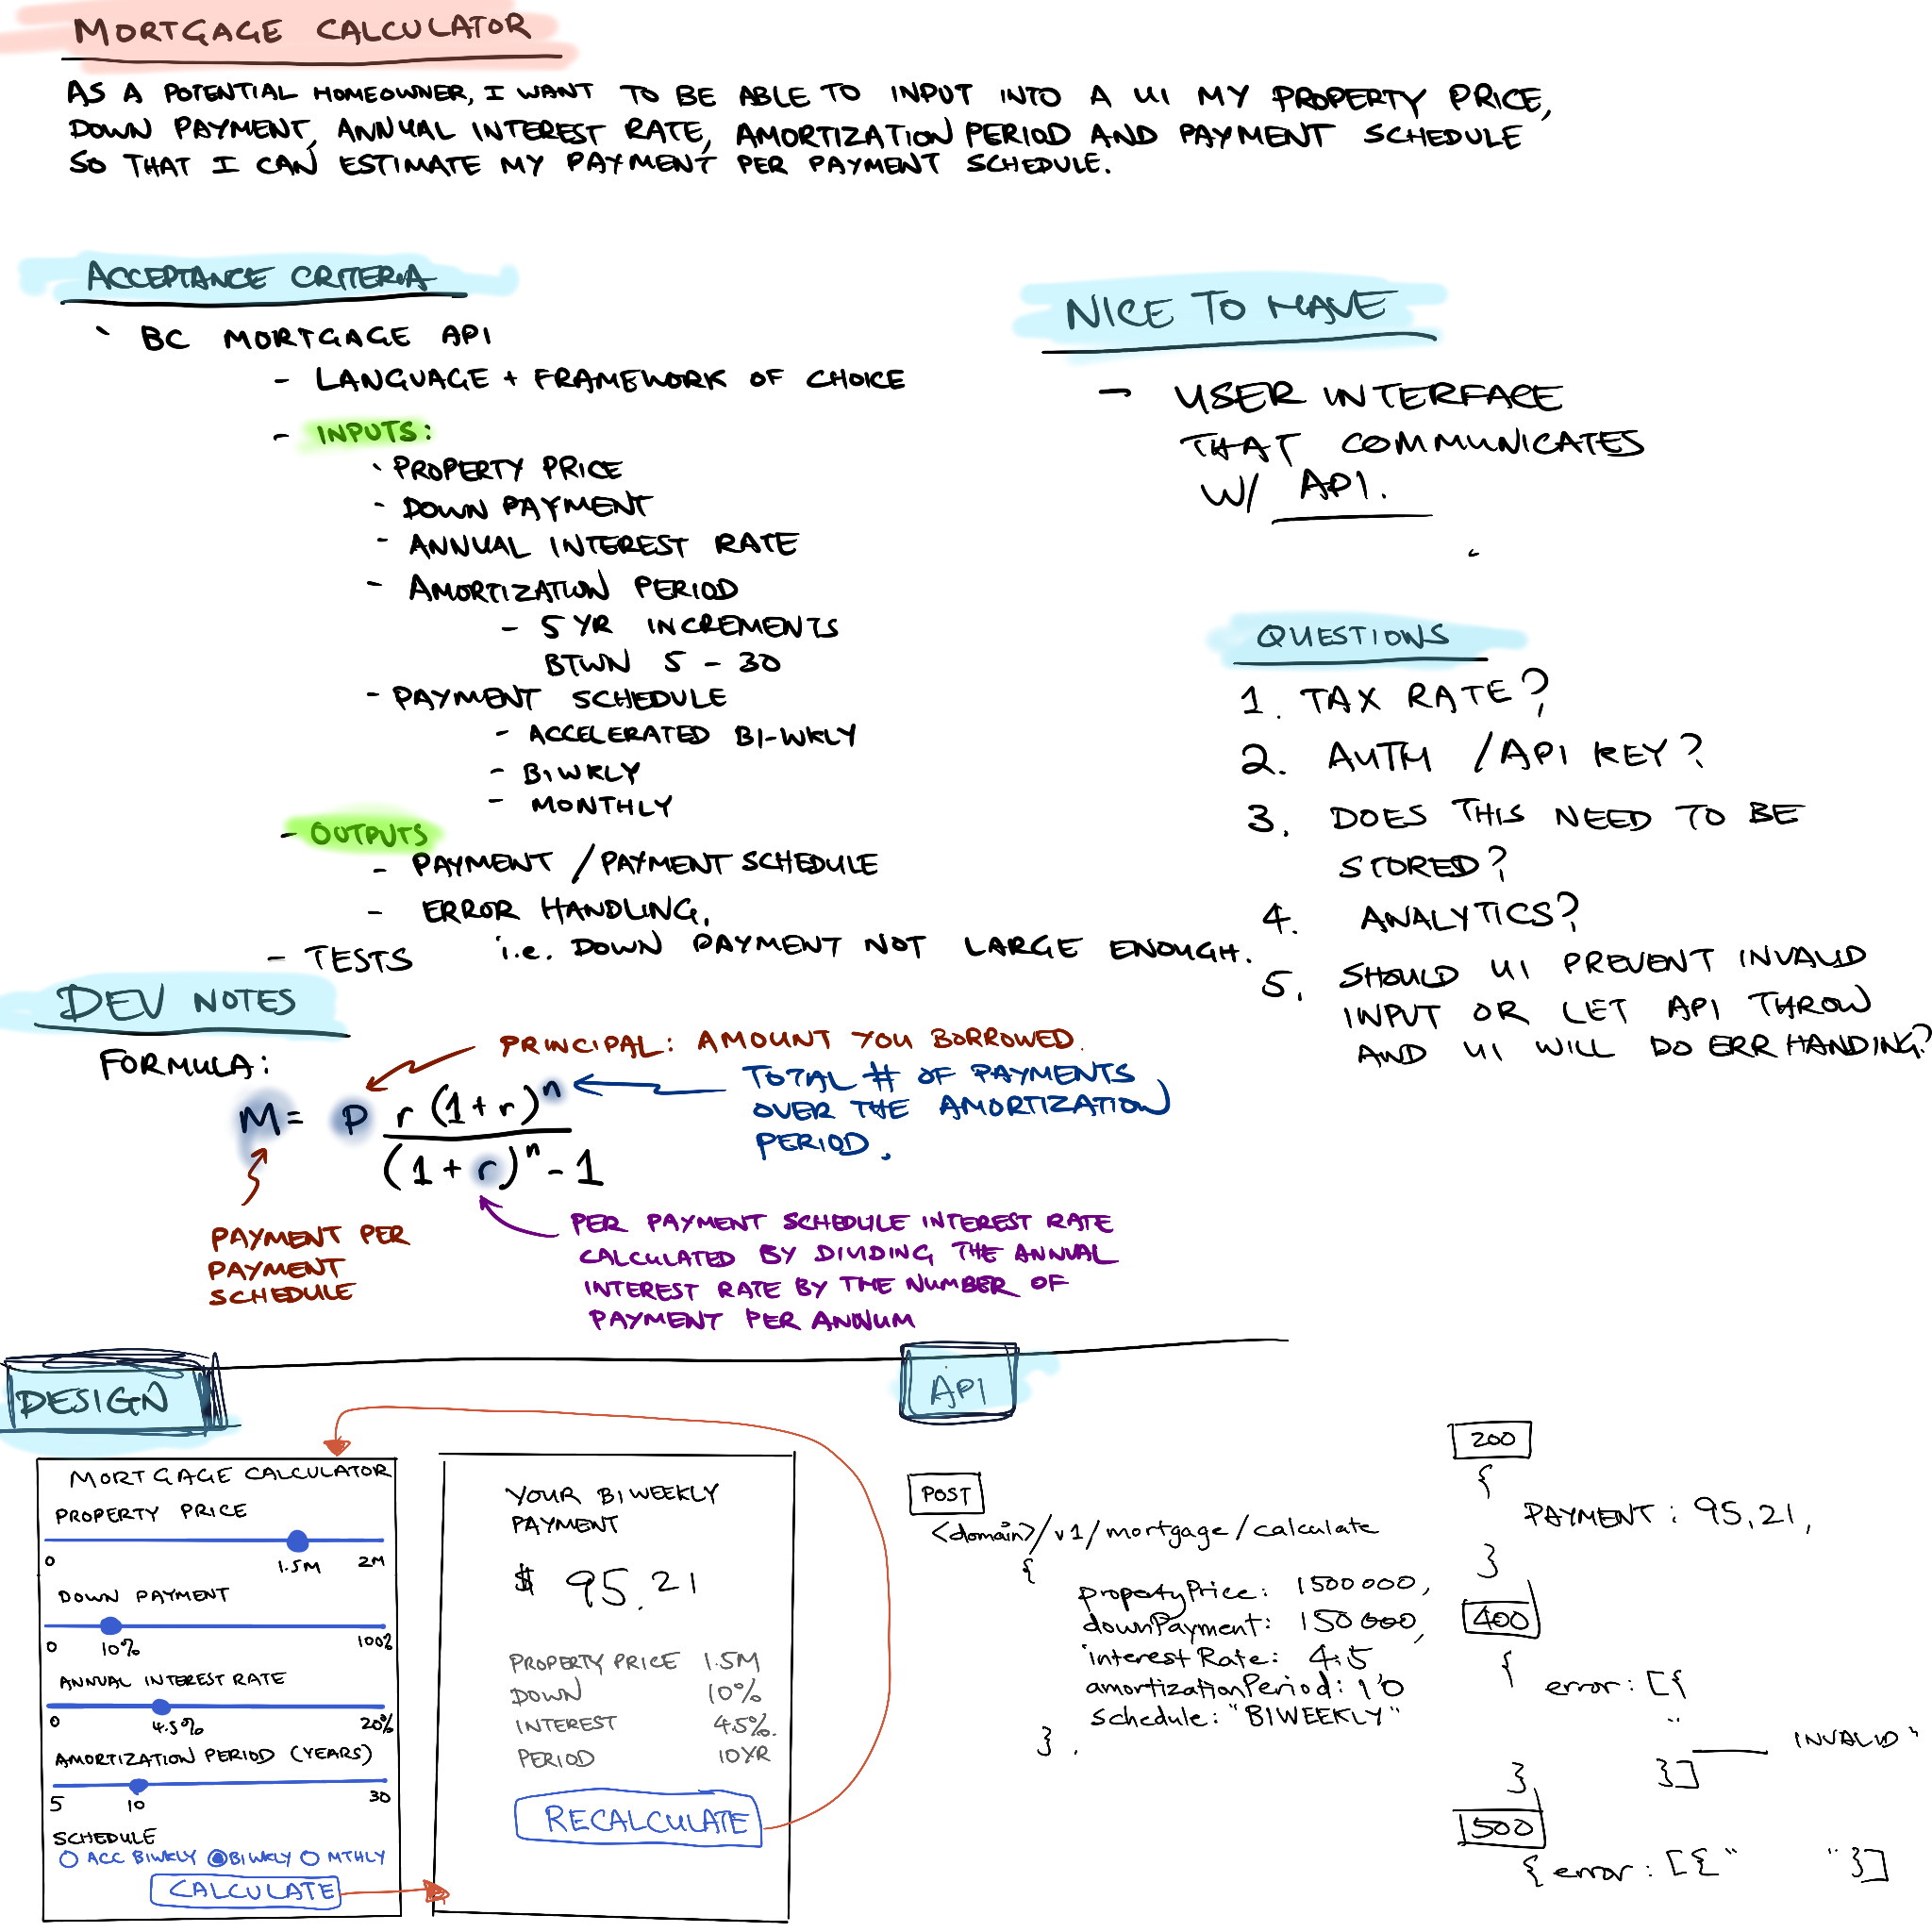 MORTGAGE CALCULATOR
AS A POTENTIAL HOMEOWNER, I WANT TO BE ABLE TO INPUT INTO A UI MY PROPERTY PRICE,
DOWN PAYMENT, ANNUAL INTEREST RATE, AMORTIZATION PERIOD AND PAYMENT SCHEDULE
SO THAT I CAN ESTIMATE MY PAYMENT PER PAYMENT SCHEDULE.
ACCEPTANCE CRITERIA
BC MORTGAGE API
- LANGUAGE + FRAMEWORK OF CHOICE
- INPUTS:
- PROPERTY PRICE
- DOWN PAYMENT
- ANNUAL INTEREST RATE
- AMORTIZATION PERIOD
- 5 YR INCREMENTS
BTWN 5 - 30
- PAYMENT SCHEDULE
- ACCELERATED BI-WKLY
- BIWKLY
- MONTHLY
- OUTPUTS
- PAYMENT / PAYMENT SCHEDULE
- ERROR HANDLING.
i.e. DOWN PAYMENT NOT LARGE ENOUGH.
- TESTS
NICE TO HAVE
- USER INTERFACE
THAT COMMUNICATES
W/ API.
QUESTIONS
1. TAX RATE?
2. AUTH / API KEY?
3. DOES THIS NEED TO BE
STORED?
4. ANALYTICS?
5. SHOULD UI PREVENT INVALID
INPUT OR LET API THROW
AND UI WILL DO ERR HANDING?
DEV NOTES
FORMULA:
PRINCIPAL: AMOUNT YOU BORROWED.
M = P r (1 + r)^n
(1 + r)^n - 1
TOTAL # OF PAYMENTS
OVER THE AMORTIZATION
PERIOD.
PAYMENT PER
PAYMENT
SCHEDULE
PER PAYMENT SCHEDULE INTEREST RATE
CALCULATED BY DIVIDING THE ANNUAL
INTEREST RATE BY THE NUMBER OF
PAYMENT PER ANNUM
DESIGN
MORTGAGE CALCULATOR
PROPERTY PRICE
0 1.5M 2M
DOWN PAYMENT
0 10% 100%
ANNUAL INTEREST RATE
0 4.5% 20%
AMORTIZATION PERIOD (YEARS)
5 10 30
SCHEDULE
ACC BIWKLY BIWKLY MTHLY
CALCULATE
YOUR BIWEEKLY
PAYMENT
$ 95.21
PROPERTY PRICE 1.5M
DOWN 10%
INTEREST 4.5%.
PERIOD 10YR
RECALCULATE
API
POST
<domain>/v1/mortgage/calculate
{
propertyPrice: 1500000,
downPayment: 150000,
interestRate: 4.5
amortizationPeriod: 10
schedule: "BIWEEKLY"
}.
200
{
PAYMENT: 95.21,
}
400
{ error: [{
"____ INVALID"
} }]
500
{ error: [{" "}]